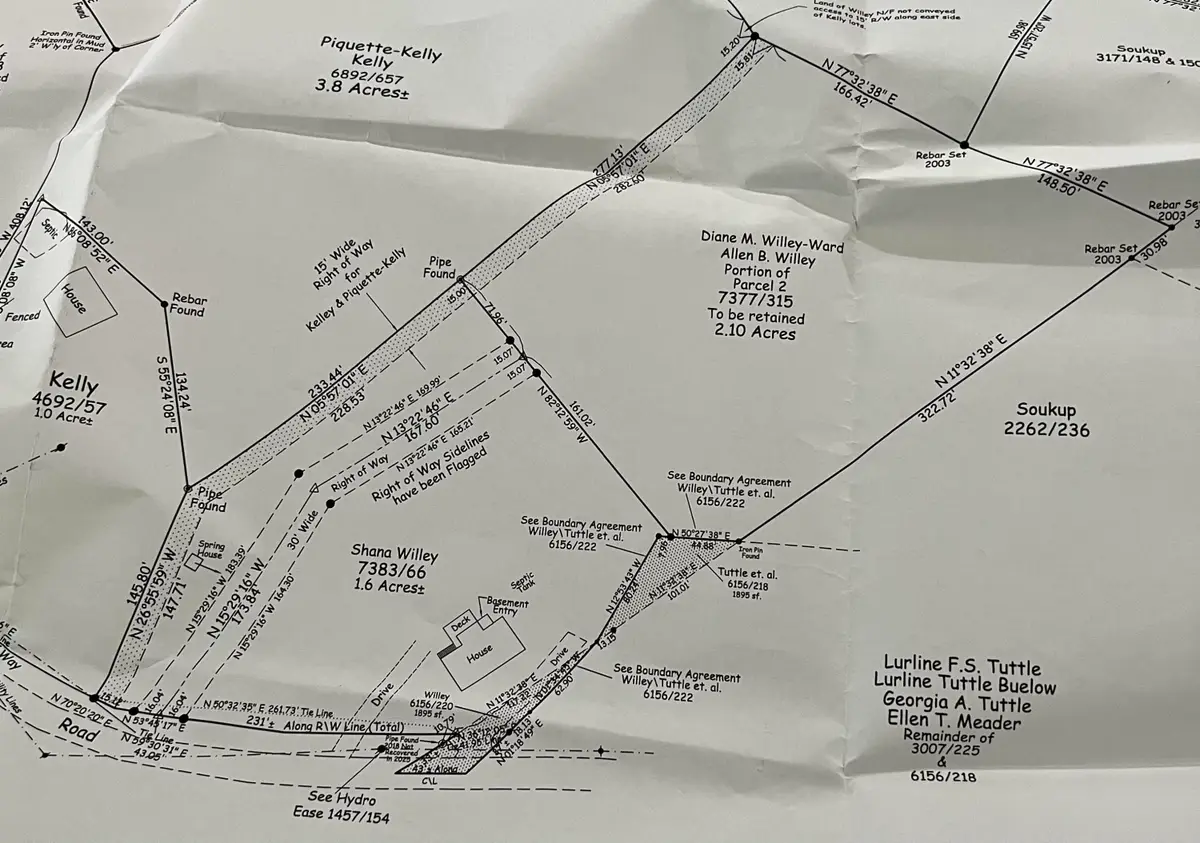 Found
Iron Pin Found
Horizontal in Mud
2' W'ly of Corner
Piquette-Kelly
Kelly
6892/657
3.8 Acres±
Land of Willey N/F not conveyed
access to 15' R/W along east side
of Kelly lots.
15.20'
15.81'
N 77°32'38" E
166.42'
198.66'
Soukup
3171/148 & 150
Rebar Set
2003
N 77°32'38" E
148.50'
Rebar Set
2003
Rebar Set
2003
30.98'
277.13'
N 05°57'01" E
282.60'
Diane M. Willey-Ward
Allen B. Willey
Portion of
Parcel 2
7377/315
To be retained
2.10 Acres
W 408.12'
143.00'
N 36°08'52" E
Septic
House
Fenced
Rebar
Found
15' Wide
Right of Way
for
Kelley & Piquette-Kelly
Pipe
Found
15.00'
71.96'
15.07'
15.07'
Kelly
4692/57
1.0 Acre±
S 55°24'08" E
134.24'
233.44'
N 05°57'01" E
228.53'
N 13°22'46" E 169.99'
N 13°22'46" E
167.60'
N 13°22'46" E 165.21'
Right of Way
Right of Way Sidelines
have been Flagged
N 82°12'59" W
161.02'
N 11°32'38" E
322.72'
Soukup
2262/236
Pipe
Found
30' Wide
Spring
House
145.80'
N 26°55'59" W
147.71'
N 15°29'16" W 183.39'
N 15°29'16" W
173.84'
N 15°29'16" W 164.30'
Shana Willey
7383/66
1.6 Acres±
See Boundary Agreement
Willey\Tuttle et. al.
6156/222
See Boundary Agreement
Willey\Tuttle et. al.
6156/222
N 50°27'38" E
44.88'
Iron Pin
Found
7.96'
Tuttle et. al.
6156/218
1895 sf.
N 12°53'43" W
80.74'
N 11°32'38" E
101.01'
13.15'
Septic
Tank
Basement
Entry
Deck
House
Drive
Drive
See Boundary Agreement
Willey\Tuttle et. al.
6156/222
62.90'
Willey
6156/220
1895 sf.
N 11°32'38" E
Way
N 70°20'20" E
Road
16.04'
16.04'
N 53°45'17" E
Tie Line
N 59°30'31" E
43.05'
N 50°32'35" E 261.73' Tie Line
231'± Along R\W Line (Total)
Pipe Found
2018 Not
Recovered
in 2025
18.13'
N 01°18'49" E
43'± Along
C\L
See Hydro
Ease 1457/154
Lurline F.S. Tuttle
Lurline Tuttle Buelow
Georgia A. Tuttle
Ellen T. Meader
Remainder of
3007/225
&
6156/218